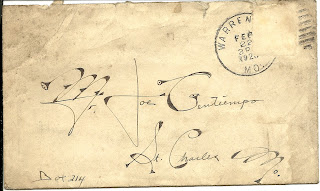 WARREN
FEB
22
3 P
192
MO.
Mr. Joe Tintiempo
St. Charles Mo.
Box 214